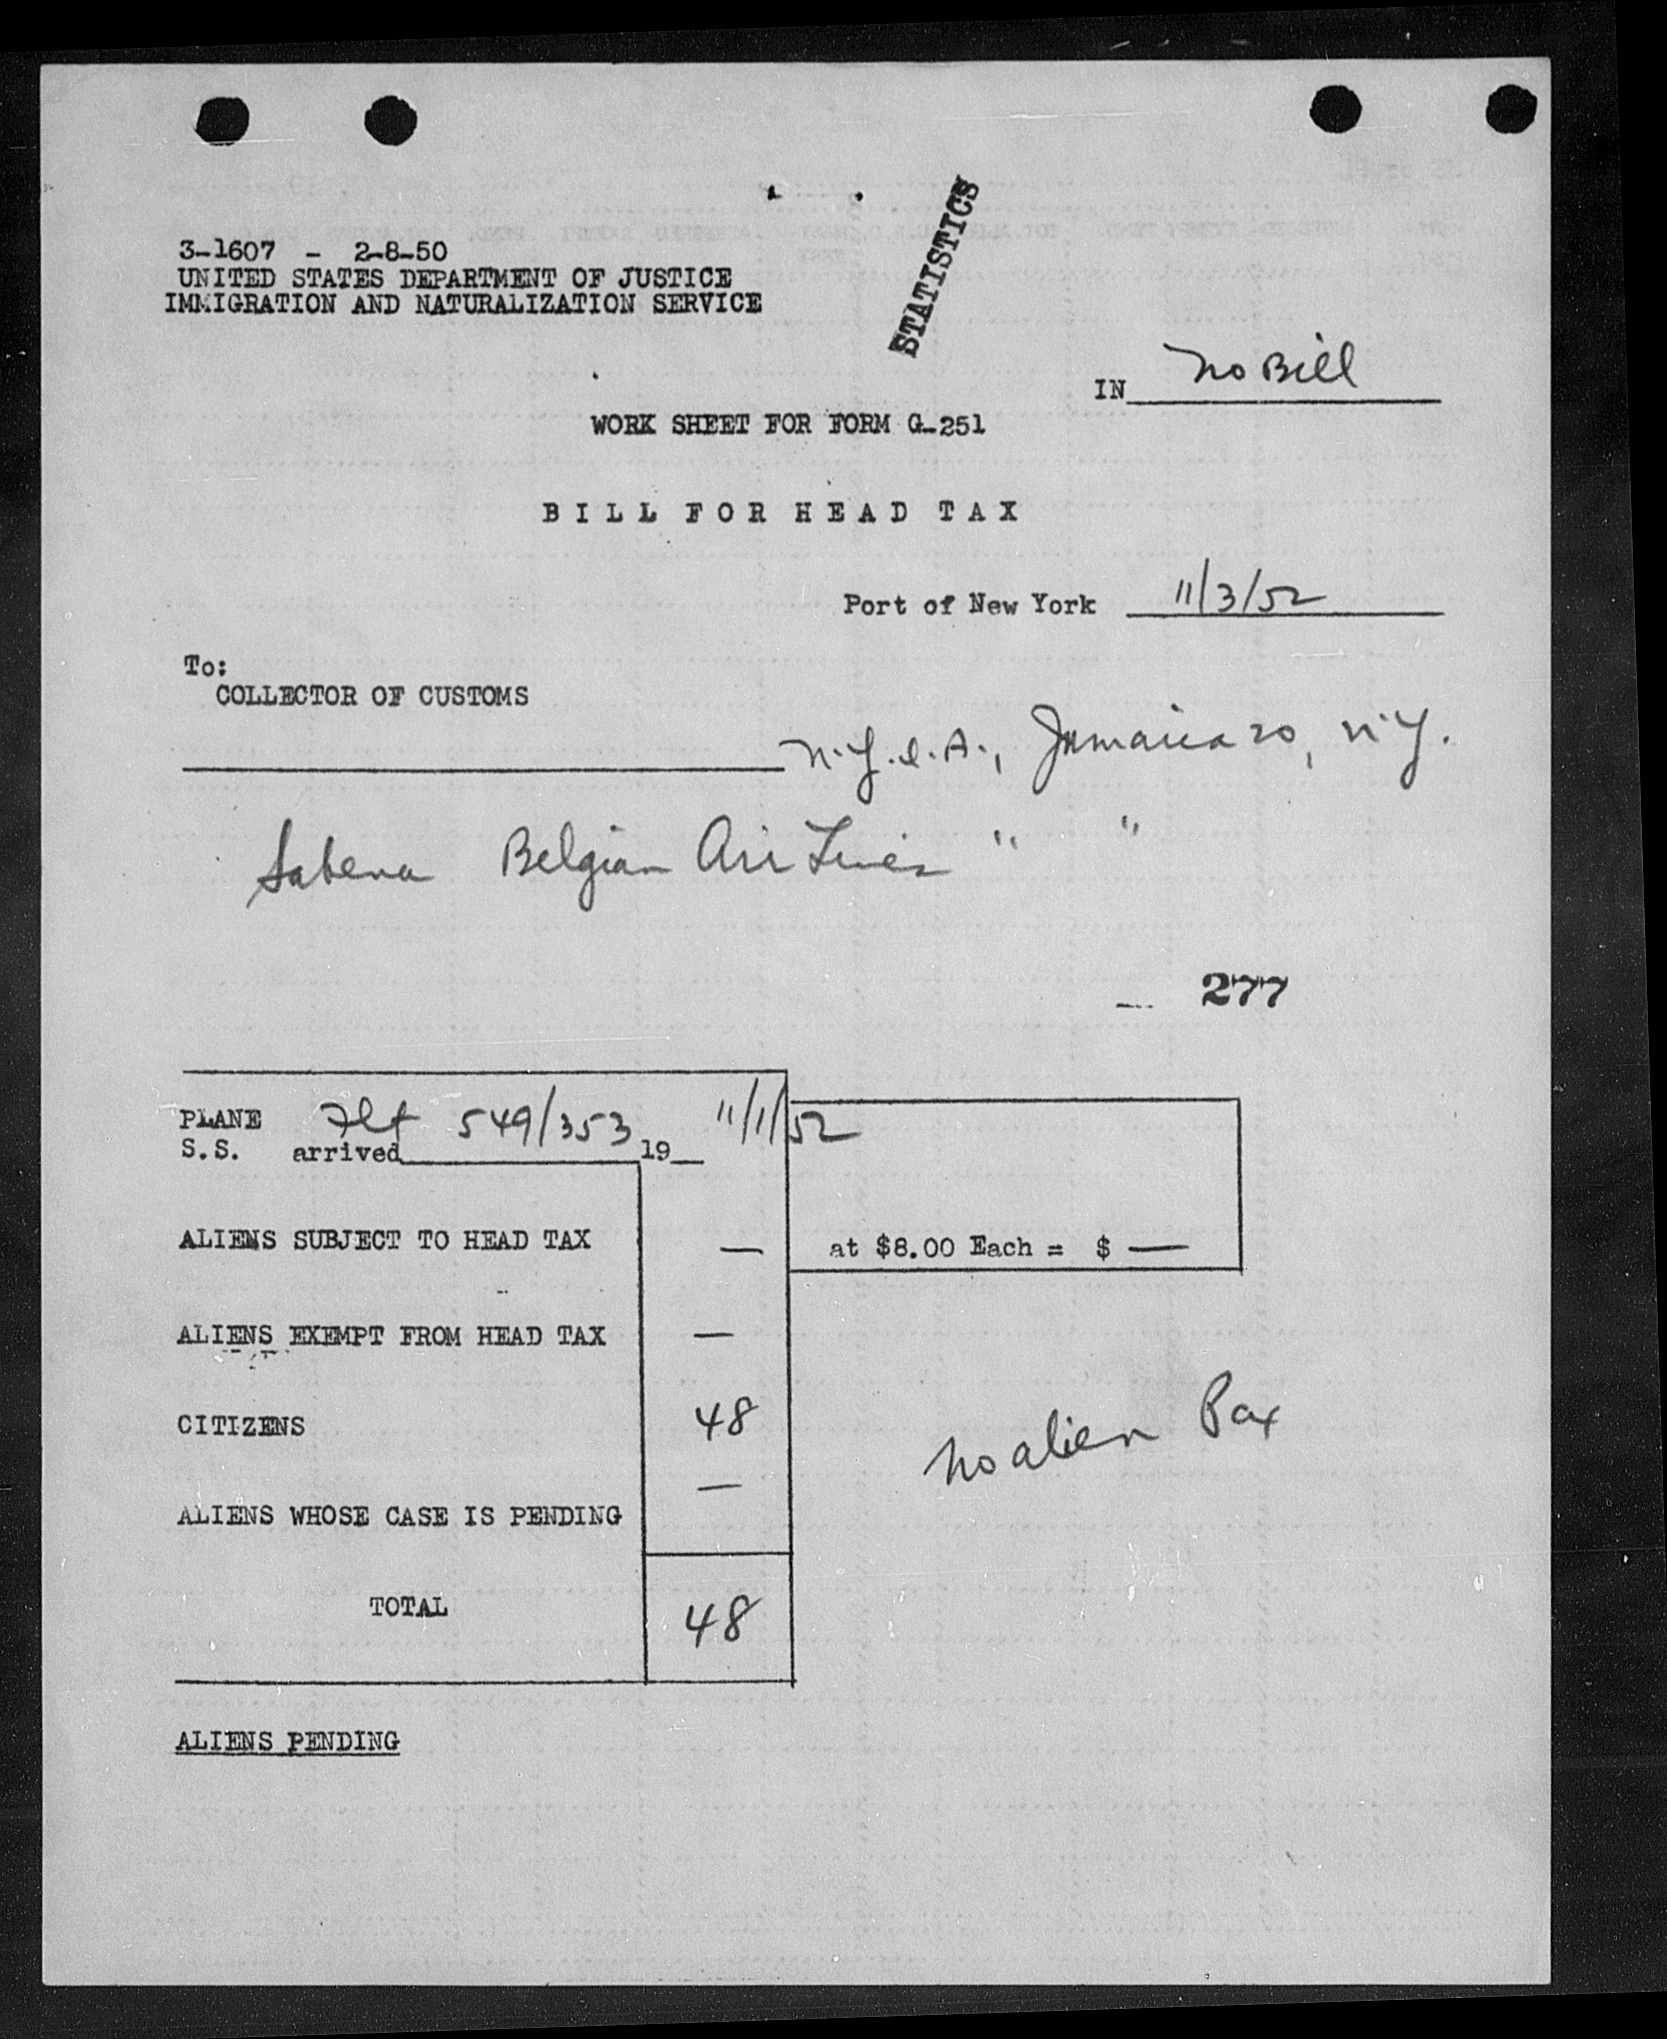 STATISTICS
3-1607 - 2-8-50
UNITED STATES DEPARTMENT OF JUSTICE
IMMIGRATION AND NATURALIZATION SERVICE
IN No Bill
WORK SHEET FOR FORM G-251
BILL FOR HEAD TAX
Port of New York 11/3/52
To:
COLLECTOR OF CUSTOMS
N.Y.I.A., Jamaica 20, N.Y.
Sabena Belgian Air Lines " "
277
PLANE Flt 549/353 11/1/52
S.S. arrived 19
ALIENS SUBJECT TO HEAD TAX — at $8.00 Each = $ —
ALIENS EXEMPT FROM HEAD TAX —
CITIZENS 48
No alien Pax
ALIENS WHOSE CASE IS PENDING —
TOTAL 48
ALIENS PENDING